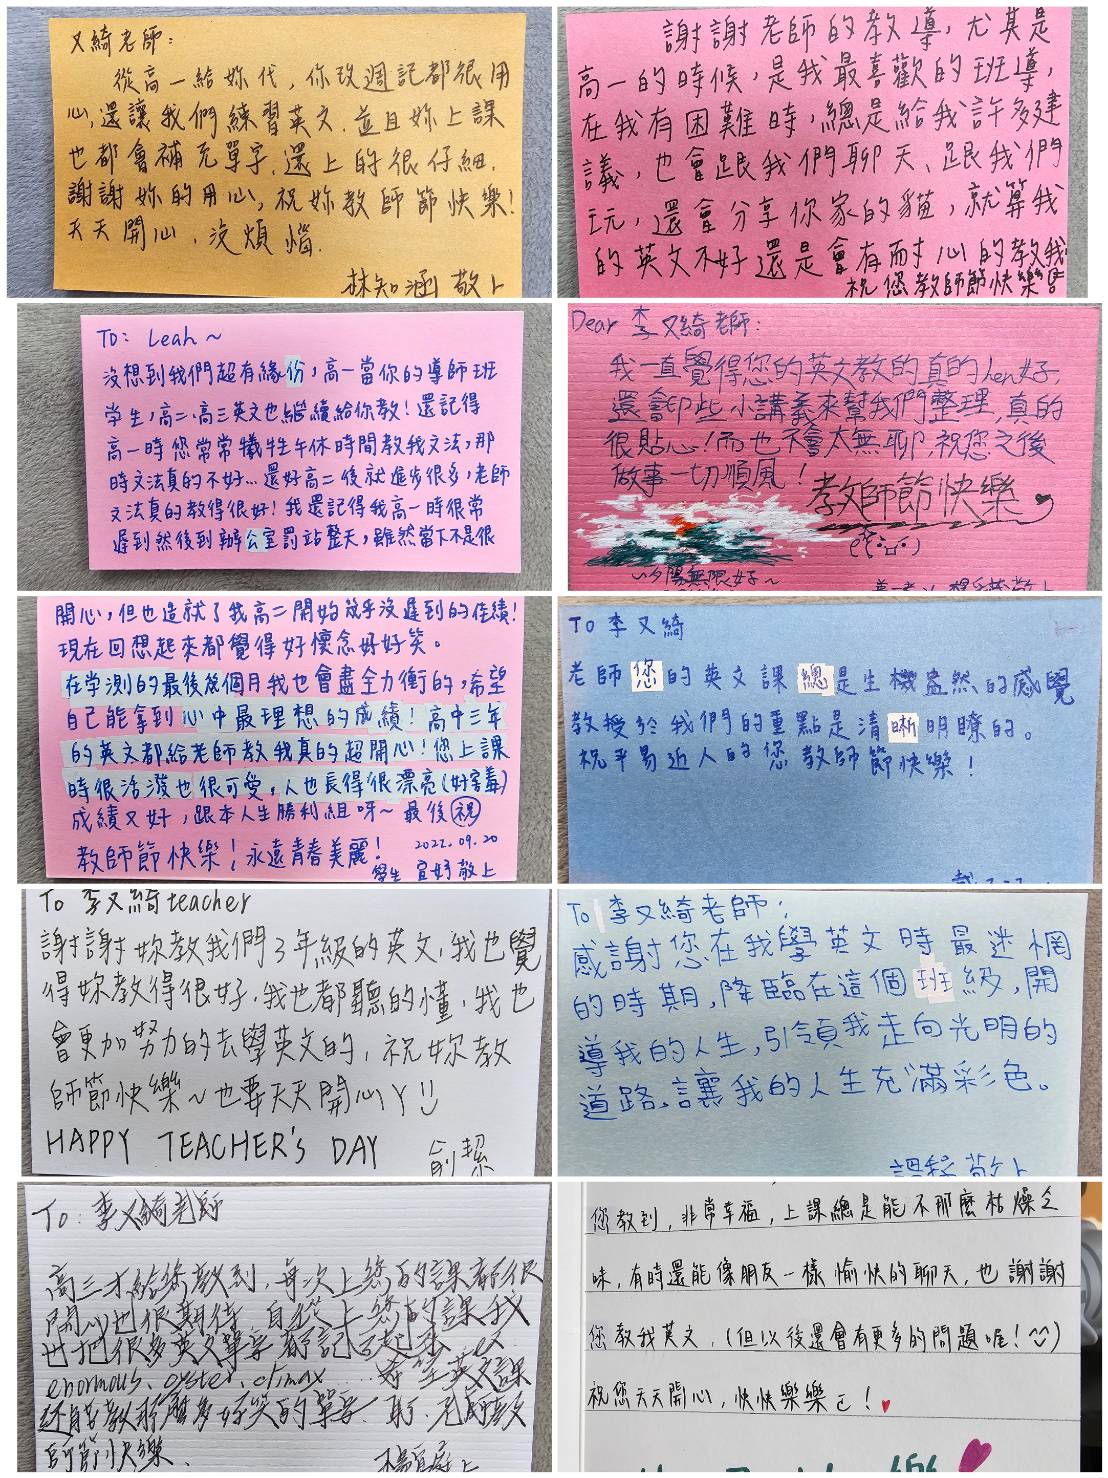 又綺老師：
從高一給妳代，你改週記都很用
心，還讓我們練習英文．並且妳上課
也都會補充單字，還上的很仔細．
謝謝妳的用心，祝妳教師節快樂！
天天開心，沒煩惱．
林知涵 敬上
謝謝老師的教導，尤其是
高一的時候，是我最喜歡的班導，
在我有困難時，總是給我許多建
議，也會跟我們聊天、跟我們
玩，還會分享你家的貓，就算我
的英文不好還是會有耐心的教我
祝您教師節快樂
To: Leah~
沒想到我們超有緣份，高一當你的導師班
學生，高二、高三英文也繼續給你教！還記得
高一時您常常犧牲午休時間教我文法，那
時文法真的不好...還好高二後就進步很多，老師
文法真的教得很好！我還記得我高一時很常
遲到然後到辦公室罰站整天，雖然當下不是很
Dear 李又綺老師：
我一直覺得您的英文教的真的hen好，
還會印些小講義來幫我們整理，真的
很貼心！而也不會太無聊，祝您之後
做事一切順風！
教師節快樂
~夕陽無限好~
開心，但也造就了我高二開始幾乎沒遲到的佳績！
現在回想起來都覺得好懷念好好笑。
在学測的最後幾個月我也會盡全力衝的，希望
自己能拿到心中最理想的成績！高中三年
的英文都給老師教我真的超開心！您上課
時很活潑也很可愛，人也長得很漂亮(好害羞)
成績又好，跟本人生勝利組呀~最後祝
教師節快樂！永遠青春美麗！ 2022.09.20
學生 宜妤 敬上
To 李又綺
老師您的英文課總是生機盎然的感覺
教授於我們的重點是清晰明瞭的。
祝平易近人的您教師節快樂！
To 李又綺teacher
謝謝妳教我們3年級的英文，我也覺
得妳教得很好，我也都聽的懂，我也
會更加努力的去學英文的，祝妳教
師節快樂~也要天天開心Y
HAPPY TEACHER's DAY 俞絜
To 李又綺老師：
感謝您在我學英文時最迷惘
的時期，降臨在這個班級，開
導我的人生，引領我走向光明的
道路，讓我的人生充滿彩色。
敬上
To：李又綺老師
高三才給您教到，每次上您的課都很
開心也很期待，自從上您的課我
也把很多英文單字都記了起來，ex
enormous、oyster、climax......希望英文課
還能教那麼多好笑的單字，耶．老師教
師節快樂．
您教到，非常幸福，上課總是能不那麼枯燥乏
味，有時還能像朋友一樣愉快的聊天，也謝謝
您教我英文．(但以後還會有更多的問題喔！)
祝您天天開心，快快樂樂ㄛ！